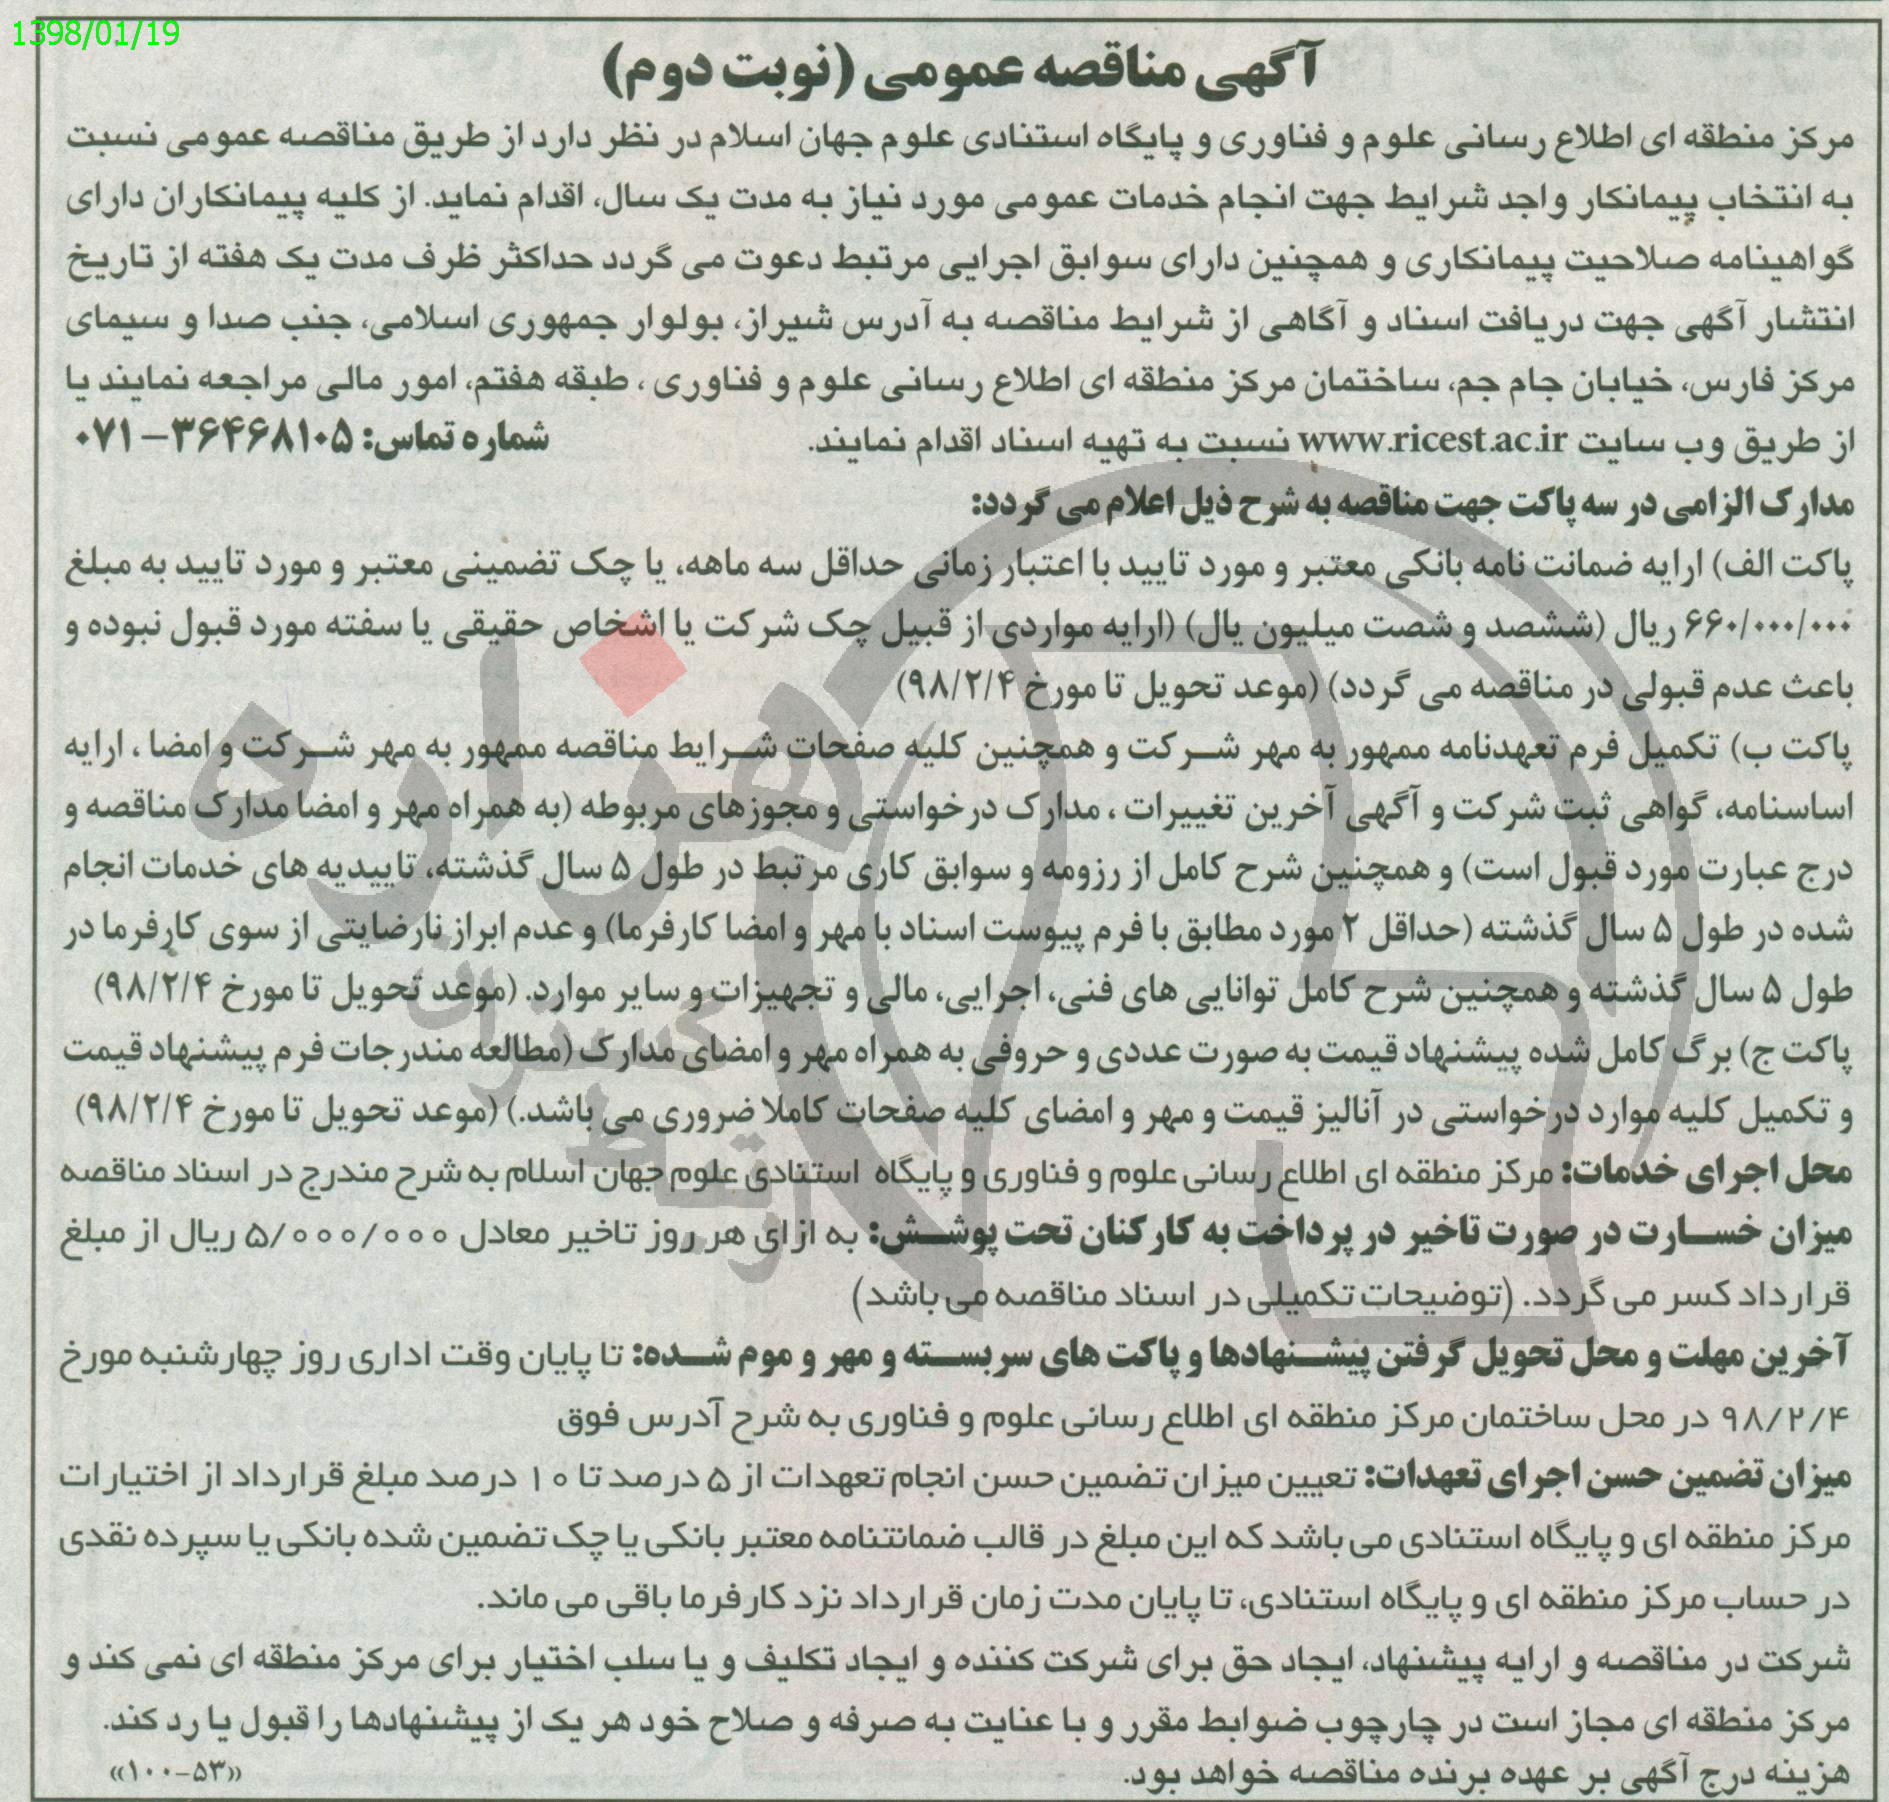 1398/01/19
آگهی مناقصه عمومی (نوبت دوم)
مرکز منطقه ای اطلاع رسانی علوم و فناوری و پایگاه استنادی علوم جهان اسلام در نظر دارد از طریق مناقصه عمومی نسبت
به انتخاب پیمانکار واجد شرایط جهت انجام خدمات عمومی مورد نیاز به مدت یک سال، اقدام نماید. از کلیه پیمانکاران دارای
گواهینامه صلاحیت پیمانکاری و همچنین دارای سوابق اجرایی مرتبط دعوت می گردد حداکثر ظرف مدت یک هفته از تاریخ
انتشار آگهی جهت دریافت اسناد و آگاهی از شرایط مناقصه به آدرس شیراز، بولوار جمهوری اسلامی، جنب صدا و سیمای
مرکز فارس، خیابان جام جم، ساختمان مرکز منطقه ای اطلاع رسانی علوم و فناوری، طبقه هفتم، امور مالی مراجعه نمایند یا
از طریق وب سایت www.ricest.ac.ir نسبت به تهیه اسناد اقدام نمایند. شماره تماس: ۳۶۴۶۸۱۰۵–۰۷۱
مدارک الزامی در سه پاکت جهت مناقصه به شرح ذیل اعلام می گردد:
پاکت الف) ارایه ضمانت نامه بانکی معتبر و مورد تایید با اعتبار زمانی حداقل سه ماهه، یا چک تضمینی معتبر و مورد تایید به مبلغ
۶۶۰/۰۰۰/۰۰۰ ریال (ششصد و شصت میلیون یال) (ارایه مواردی از قبیل چک شرکت یا اشخاص حقیقی یا سفته مورد قبول نبوده و
باعث عدم قبولی در مناقصه می گردد) (موعد تحویل تا مورخ ۹۸/۲/۴)
پاکت ب) تکمیل فرم تعهدنامه ممهور به مهر شرکت و همچنین کلیه صفحات شرایط مناقصه ممهور به مهر شرکت و امضا، ارایه
اساسنامه، گواهی ثبت شرکت و آگهی آخرین تغییرات، مدارک درخواستی و مجوزهای مربوطه (به همراه مهر و امضا مدارک مناقصه و
درج عبارت مورد قبول است) و همچنین شرح کامل از رزومه و سوابق کاری مرتبط در طول ۵ سال گذشته، تاییدیه های خدمات انجام
شده در طول ۵ سال گذشته (حداقل ۲ مورد مطابق با فرم پیوست اسناد با مهر و امضا کارفرما) و عدم ابراز نارضایتی از سوی کارفرما در
طول ۵ سال گذشته و همچنین شرح کامل توانایی های فنی، اجرایی، مالی و تجهیزات و سایر موارد. (موعد تحویل تا مورخ ۹۸/۲/۴)
پاکت ج) برگ کامل شده پیشنهاد قیمت به صورت عددی و حروفی به همراه مهر و امضای مدارک (مطالعه مندرجات فرم پیشنهاد قیمت
و تکمیل کلیه موارد درخواستی در آنالیز قیمت و مهر و امضای کلیه صفحات کاملا ضروری می باشد.) (موعد تحویل تا مورخ ۹۸/۲/۴)
محل اجرای خدمات: مرکز منطقه ای اطلاع رسانی علوم و فناوری و پایگاه استنادی علوم جهان اسلام به شرح مندرج در اسناد مناقصه
میزان خسارت در صورت تاخیر در پرداخت به کارکنان تحت پوشش: به ازای هر روز تاخیر معادل ۵/۰۰۰/۰۰۰ ریال از مبلغ
قرارداد کسر می گردد. (توضیحات تکمیلی در اسناد مناقصه می باشد)
آخرین مهلت و محل تحویل گرفتن پیشنهادها و پاکت های سربسته و مهر و موم شده: تا پایان وقت اداری روز چهارشنبه مورخ
۹۸/۲/۴ در محل ساختمان مرکز منطقه ای اطلاع رسانی علوم و فناوری به شرح آدرس فوق
میزان تضمین حسن اجرای تعهدات: تعیین میزان تضمین حسن انجام تعهدات از ۵ درصد تا ۱۰ درصد مبلغ قرارداد از اختیارات
مرکز منطقه ای و پایگاه استنادی می باشد که این مبلغ در قالب ضمانتنامه معتبر بانکی یا چک تضمین شده بانکی یا سپرده نقدی
در حساب مرکز منطقه ای و پایگاه استنادی، تا پایان مدت زمان قرارداد نزد کارفرما باقی می ماند.
شرکت در مناقصه و ارایه پیشنهاد، ایجاد حق برای شرکت کننده و ایجاد تکلیف و یا سلب اختیار برای مرکز منطقه ای نمی کند و
مرکز منطقه ای مجاز است در چارچوب ضوابط مقرر و با عنایت به صرفه و صلاح خود هر یک از پیشنهادها را قبول یا رد کند.
هزینه درج آگهی بر عهده برنده مناقصه خواهد بود. «۵۳–۱۰۰»
هزاره
گستره
ارتباط